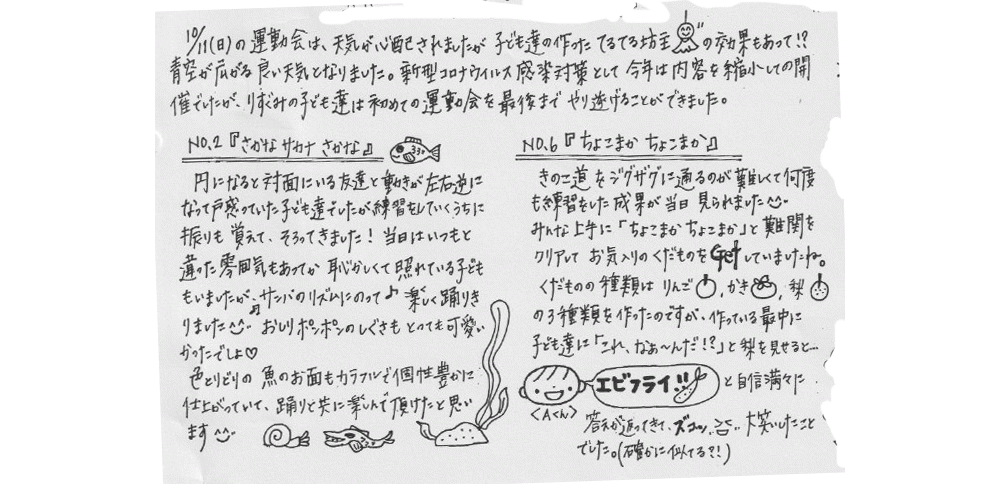 10/11(日)の運動会は、天気が心配されましたが子ども達の作ったてるてる坊主の効果もあって!?
青空が広がる良い天気となりました。新型コロナウイルス感染対策として今年は内容を縮小しての開
催でしたが、りずみの子ども達は初めての運動会を最後までやり遂げることができました。
NO.2『さかな サカナ さかな』
円になると対面にいる友達と動きが左右逆に
なって戸惑っていた子ども達でしたが練習をしていくうちに
振りも覚えて、そろってきました！当日はいつもと
違った雰囲気もあってか恥かしくて照れている子ども
もいましたが、サンバのリズムにのって♪楽しく踊りき
りました^^ おしりポンポンのしぐさもとっても可愛い
かったでしょ♡
色とりどりの魚のお面もカラフルで個性豊かに
仕上がっていて、踊りと共に楽しんで頂けたと思い
ます^^
NO.6『ちょこまか ちょこまか』
きのこ道をジグザグに通るのが難しくて何度
も練習をした成果が当日見られました^^
みんな上手に「ちょこまかちょこまか」と難関を
クリアしてお気入りのくだものをGetしていましたね。
くだものの種類はりんご,かき,梨
の3種類を作ったのですが、作っている最中に
子ども達に「これ、なぁ〜んだ!?」と梨を見せると…
エビフライ!!と自信満々に
<Aくん>
答えが返ってきて、ズコッ, 大笑いしたこと
でした。(確かに似てる?!)